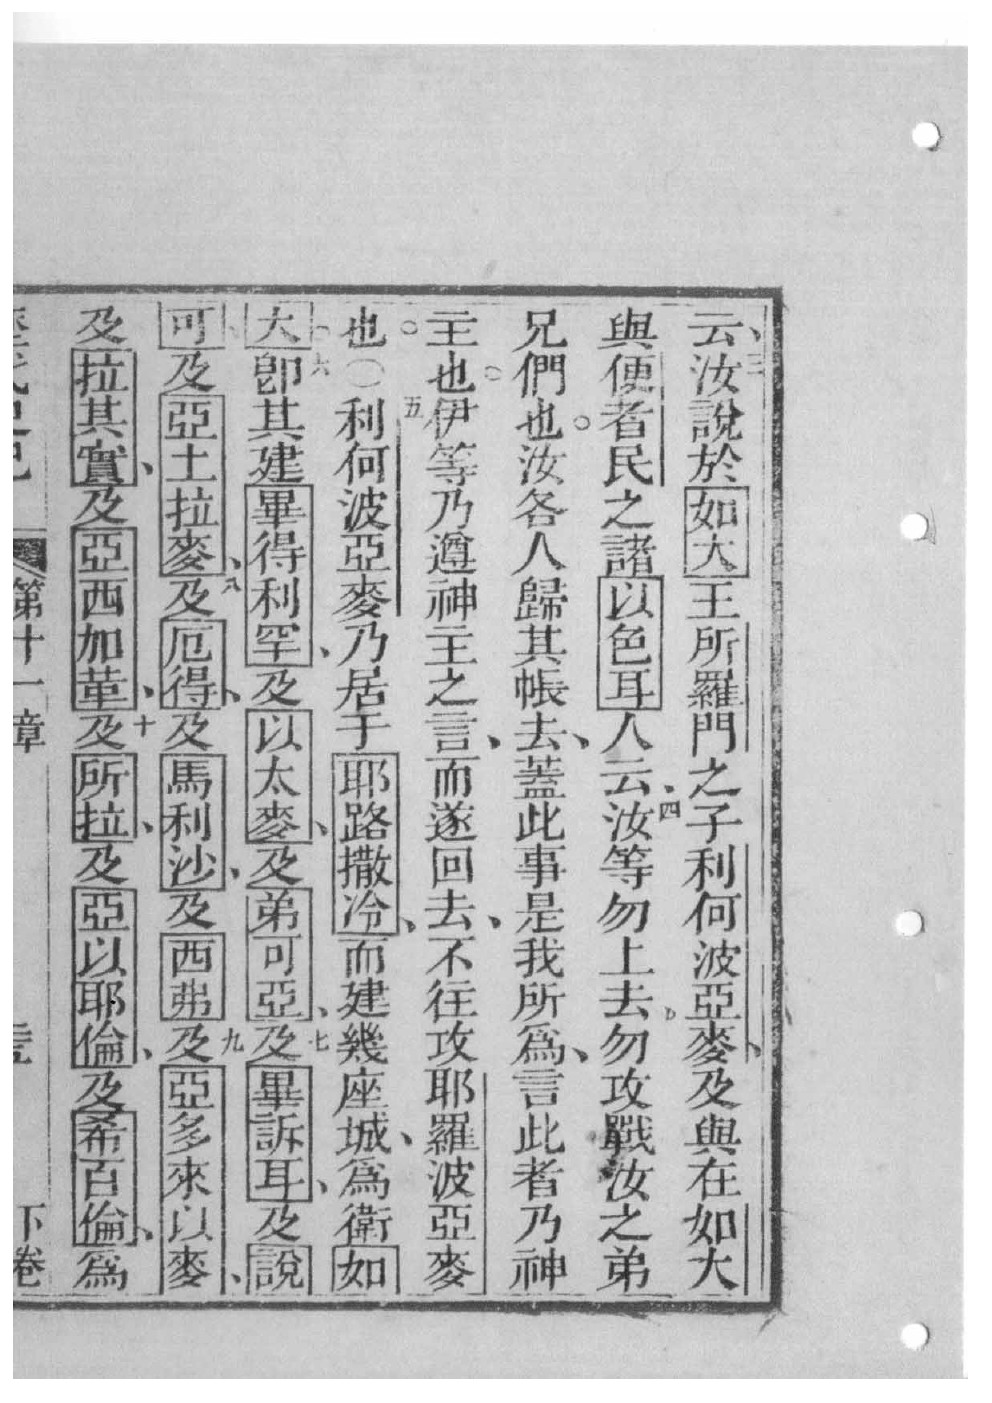 云、三汝說於如大王所羅門之子利何波亞麥、及與在如大
與便者民之諸以色耳人云、四汝等勿上去勿攻戰汝之弟
兄們也。汝各人歸其帳去、蓋此事是我所爲、言此者乃神
主也。伊等乃遵神主之言、而遂回去、不往攻耶羅波亞麥
也。○五利何波亞麥乃居于耶路撒冷、而建幾座城、爲衛如
大。六卽其建畢得利罕、及以太麥、及弟可亞、七及畢訴耳、及說
可、及亞土拉麥、八及厄得、及馬利沙、及西弗九及亞多來以麥、
及拉其實、及亞西加、十及所拉、及亞以耶倫、及希百倫、爲
第十一章 下卷